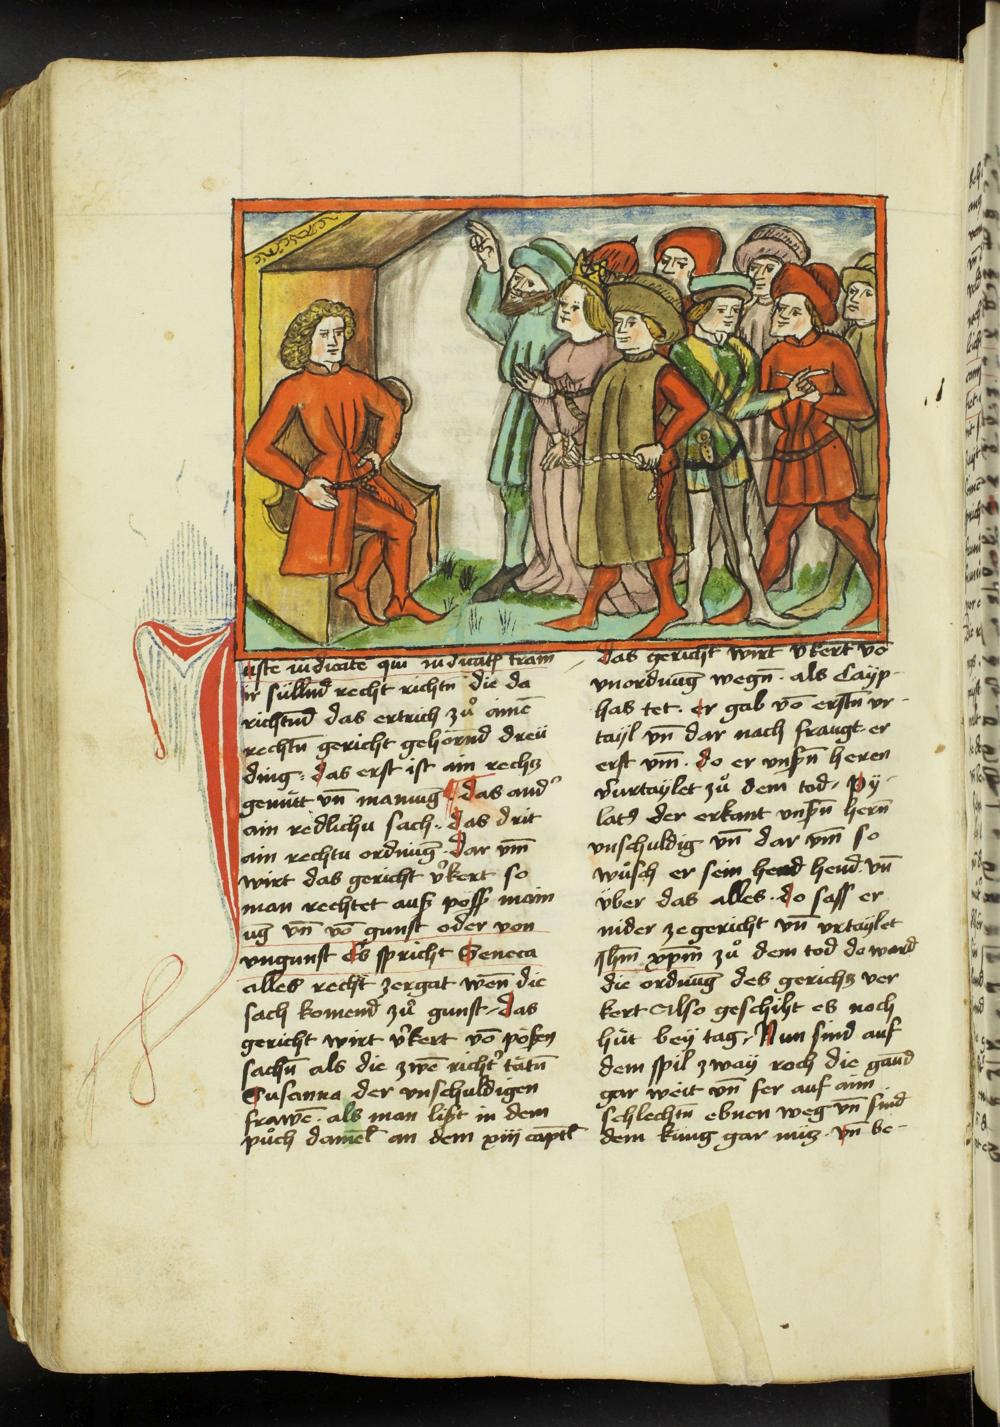 Juste iudicate qui iudicatꝭ tram
ir sülnd recht richtn̄ die da
richtnd das ertrich zuͦ aine
rechtn̄ gericht gehörnd dreü
ding. das erst ist ain rechtz
gemütt vn̄ mainug ¶ das and᷑
ain redlichu sach. das drit
ain rechtu ordnūg. Dar vm̄
wirt das gericht v᷑kert so
man rechtet auß pöß main
ug vn̄ vō gunst oder von
vngunst Es spricht Seneca
alles recht zergat wen̄ die
sach komend zuͦ gunst. das
gericht wirt v᷑kert vō pösen
sachn̄ als die zwē richt᷑ tātn̄
Susanna der vnschuldigen
frawē. als man lißt in dem
puͦch daniel an dem xiij captl̄
das gericht wirt v᷑kert vō
vnordnūg wegn̄. als Cayp-
has tet. Er gab vō erstn̄ vr-
tayl vn̄ dar nach fraugt er
erst vm̄. do er vnsn̄ heren
v᷑urtaylet zuͦ dem tod. Py-
latꝰ der erkant vnsn̄ hern̄
vnschuldig vn̄ dar vm̄ so
wuͦsch er sein hend. vn̄
über das alles. do sass er
nider ze gericht vn̄ vrtaylet
Jhm̄ xpm̄ zuͦ dem tod do ward
die ordnūg des gerichtz ver
kert Also geschiht es noch
hüt bey tag. Nun sind auf
dem spil zway roch die gānd
gar weit vn̄ fer auf aim
schlechtn̄ ebnen weg vn̄ sind
dem küng gar nütz. vn̄ be-